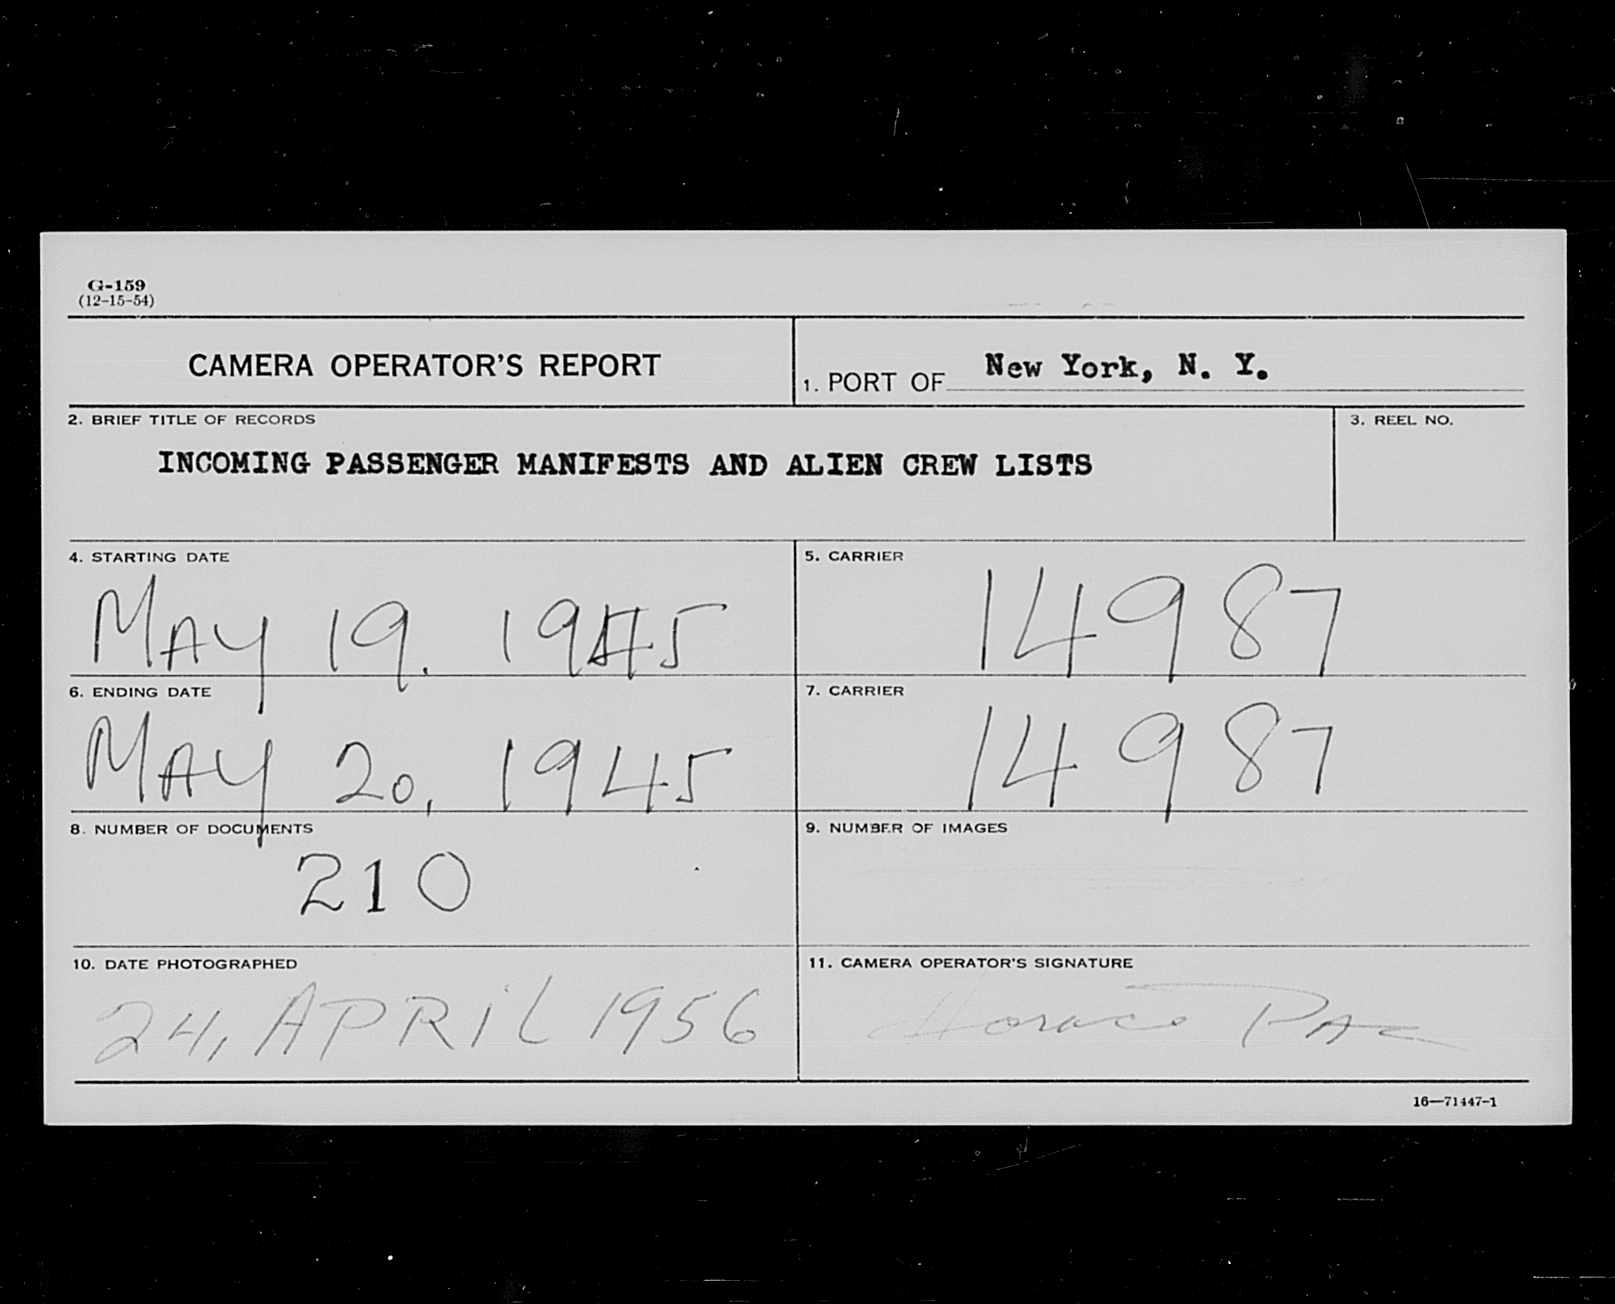 G-159
(12-15-54)
CAMERA OPERATOR'S REPORT
1. PORT OF New York, N. Y.
2. BRIEF TITLE OF RECORDS
INCOMING PASSENGER MANIFESTS AND ALIEN CREW LISTS
3. REEL NO.
4. STARTING DATE
MAY 19. 1945
5. CARRIER
14987
6. ENDING DATE
MAY 20, 1945
7. CARRIER
14987
8. NUMBER OF DOCUMENTS
210
9. NUMBER OF IMAGES
10. DATE PHOTOGRAPHED
24, APRIL 1956
11. CAMERA OPERATOR'S SIGNATURE
Horace
16—71447-1